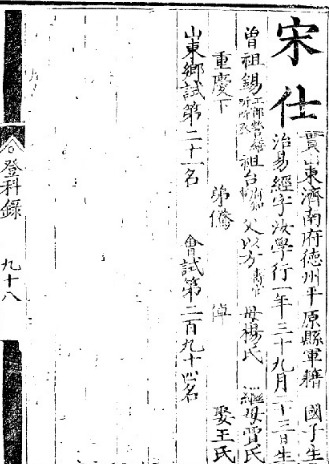 宋仕
貫山東濟南府德州平原縣軍籍 國子生
治易經字汝學行一年三十九月二十三日生
曾祖錫 祖台 父以方 母楊氏 繼母曹氏
重慶下 弟 娶王氏
山東鄉試第二十一名 會試第二百九十四名
登科錄 九十八